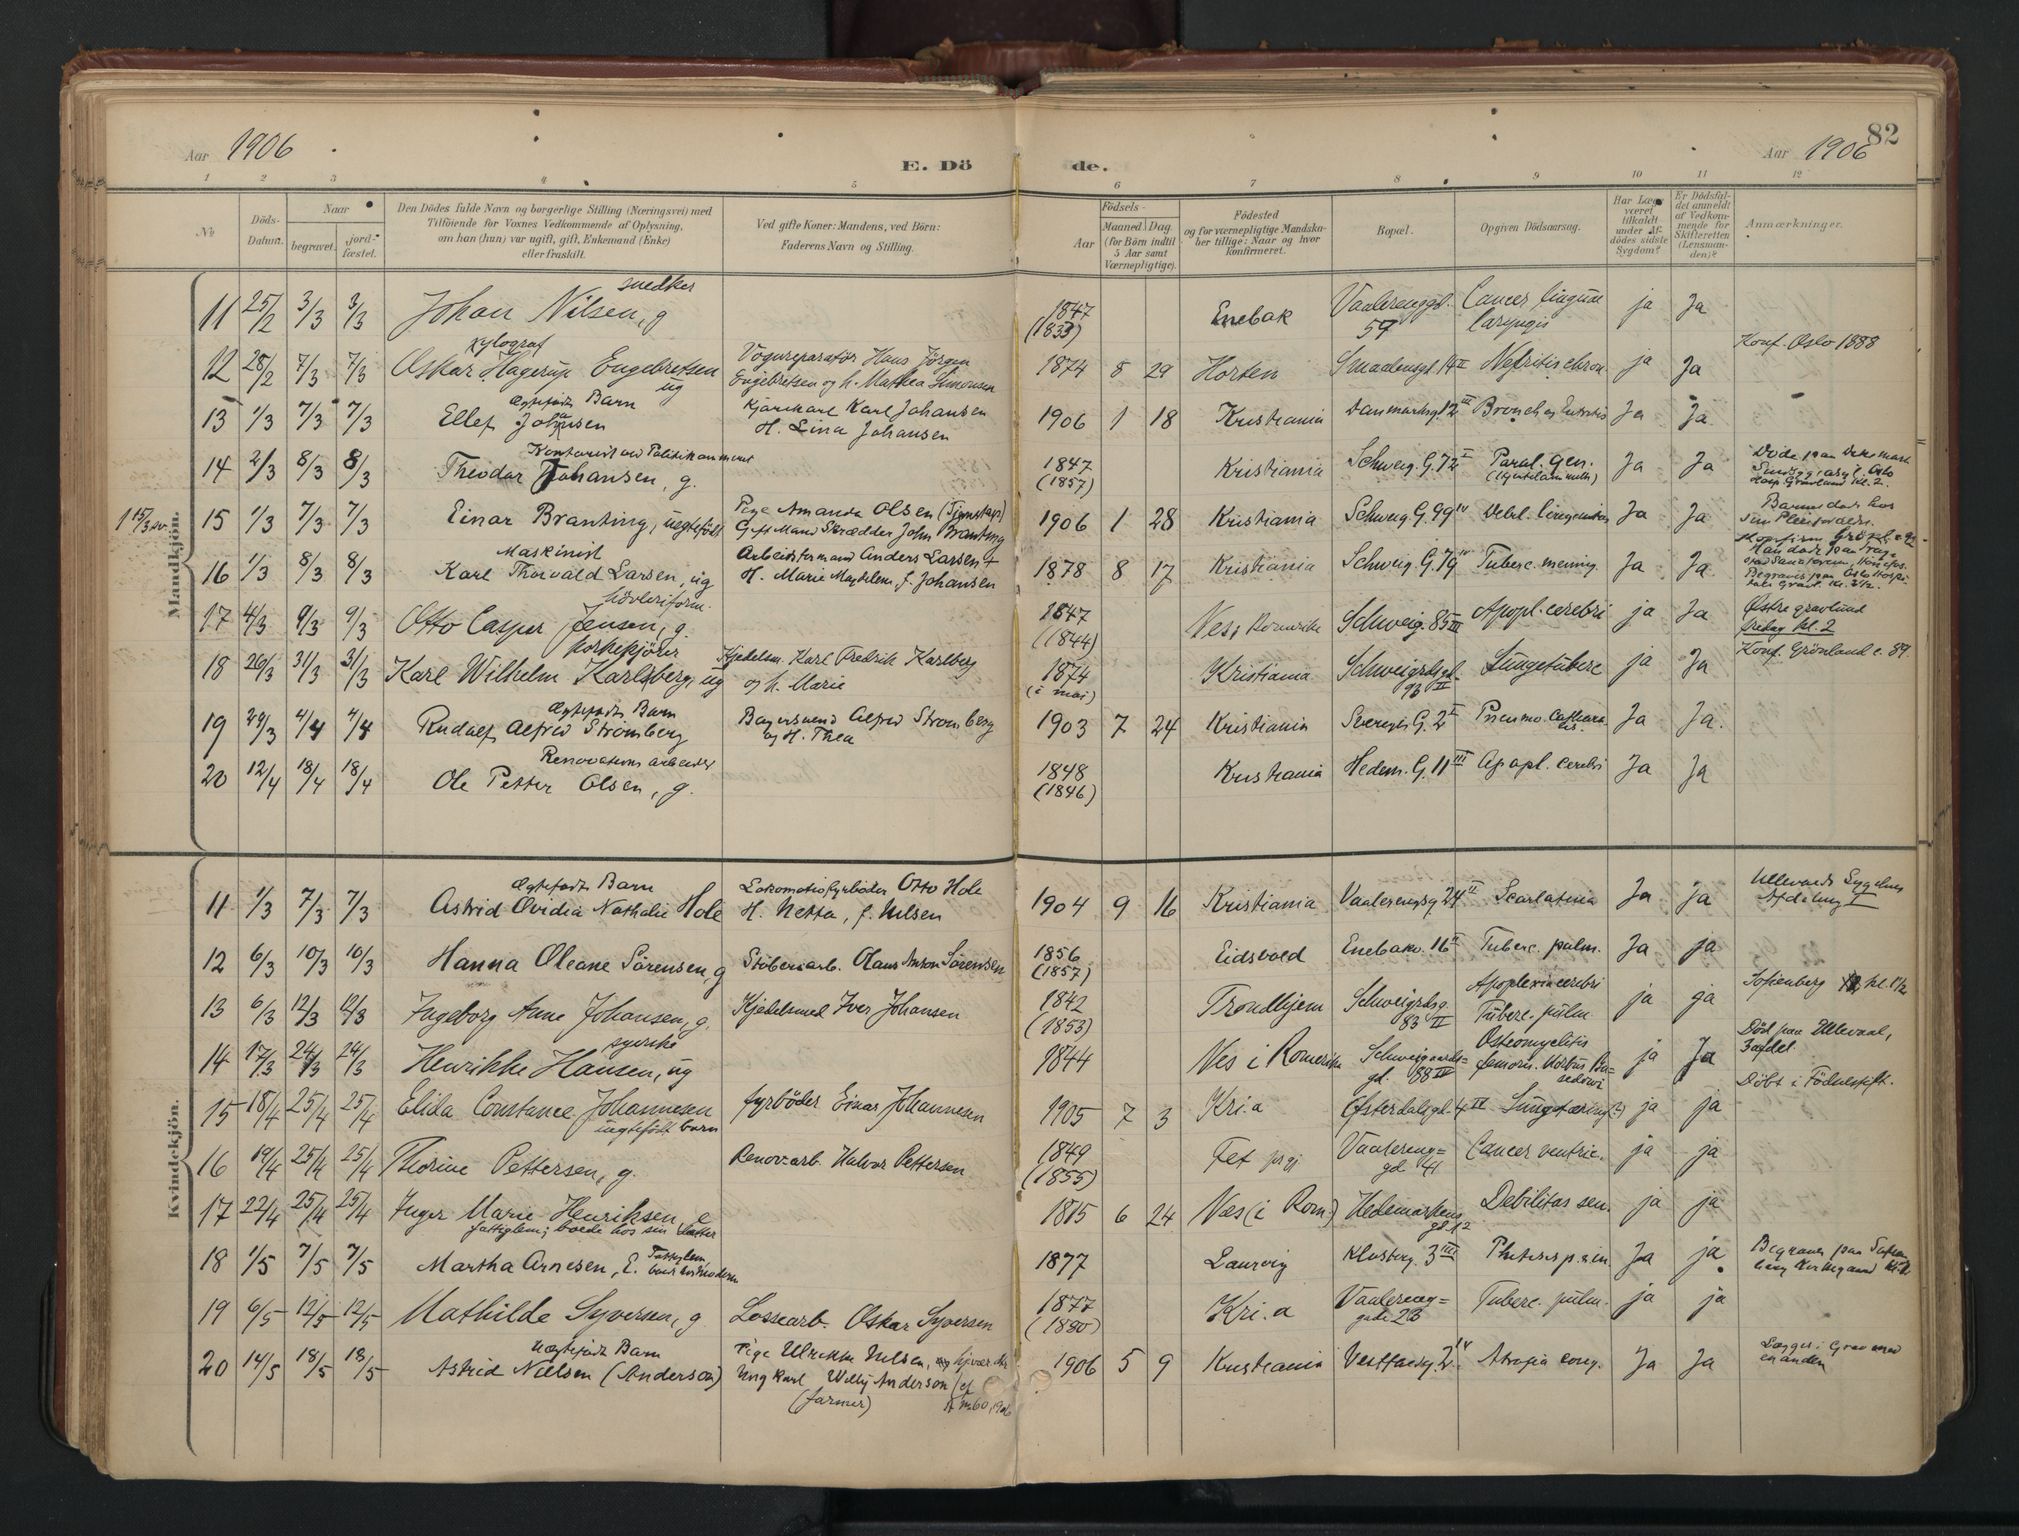 Aar 1906
E. Döde.
82
Aar 1906
1 2 3 4 5 6 7 8 9 10 11 12
No
Döds-Datum.
Naar
begravet.
jord-fæstet.
Den Dödes fulde Navn og borgerlige Stilling (Næringsvei) med
Tilföiende for Voxnes Vedkommende af Oplysning,
om han (hun) var ugift, gift, Enkemand (Enke)
eller fraskilt.
Ved gifte Koner: Mandens, ved Börn:
Faderens Navn og Stilling.
Födsels-
Aar
Maaned Dag
(for Börn indtil
5 Aar samt
Værnepligtige).
Födested
og for værnepligtige Mandska-
ber tillige: Naar og hvor
konfirmeret.
Bopæl.
Opgiven Dödsaarsag.
Har Læge
været
tilkaldt
under Af-
dödes sidste
Sygdom?
Er Dödsfal-
det anmeldt
af Vedkom-
mende for
Skifteretten
(Lensman-
den)?
Anmærkninger.
Mandkjön.
snedker
11 25/2 3/3 3/3 Johan Nilsen, g 1847 (1833) Enebak Vaalerenggd. 59 Cancer lingue laryngis ja Ja
xylograf
12 28/2 7/3 7/3 Oskar Hagerup Engebretsen ug Vognreparatör Hans Jörgen
Engebretsen og h. Mathea Simonsen 1874 8 29 Horten Smaalensgt. 14 II Nefritis chron. ja Ja Konf. Oslo 1888
Ægtefödt Barn
13 1/3 7/3 7/3 Ellef Johansen Kjörekarl Karl Johansen
H. Lina Johansen 1906 1 18 Kristiania Danmarksg. 12 III Bronch og Ja Ja
Kontorist ved Politikammeret
14 2/3 8/3 8/3 Theodor Johansen, g. 1847 (1857) Kristiania Schweig. G. 72 I Paral. gen. Ja Ja Döde paa
Oslo
Hosp Gravlund kl. 2.
1 15/3 sv.
15 1/3 7/3 7/3 Einar Branting, uegtefödt Pige Amanda Olsen
Gift Mand Skrædder John Branting 1906 1 28 Kristiania Schweig G. 99 IV Debil. Ja Ja Barnet dödt hos
sin
Maskinist
16 1/3 8/3 8/3 Karl Thorvald Larsen, ug Arbeidsformand Anders Larsen +
H. Marie Magdelene f. Johansen 1878 8 17 Kristiania Schweig. G. 79 IV Tuberc. mening. Ja Ja
Begraves paa Oslo Hospi-
tals Gravl. kl. 2 1/2.
hövleriform.
17 4/3 9/3 9/3 Otto Casper Jensen, g. 1847 (1844) Nes, Romerike Schweig. 85 III Apopl. cerebri ja Ja Östre gravlund
fredag kl. 2
18 26/3 31/3 31/3 Karl Wilhelm Karlsberg, ug Kjedelsm. Karl Fredrik Karlberg
og h. Marie 1874 (i mai) Kristiania Schweigrdsgd. 93 II Lungetuberc ja Ja Konf. Grönland e. 89.
Ægtefödt Barn
19 29/3 4/4 4/4 Rudolf Alfred Strömberg Alfred Stromberg
og H. Thea 1903 7 24 Kristiania Sverres G. 2 I Pneumo. Ja Ja.
Renovations arbeider
20 12/4 18/4 18/4 Ole Petter Olsen, g. 1848 (1846) Kristiania Hedem. G. 11 III Apopl. cerebri Ja Ja
Kvindekjön.
Ægtefödt Barn
11 1/3 7/3 7/3 Astrid Ovidia Nathalie Hole Lokomotivfyrböder Otto Hole
H. Netta, f. Nilsen 1904 9 16 Kristiania Vaalerengsg. 24 II Scarlatina Ja Ja Ullevaals Sygehus
Afdeling I
12 6/3 10/3 10/3 Hanna Oleane Sörensen, g Stöberiarb. Olaus Anton Sörensen 1856 (1857) Eidsvold Enebakv. 16 II Tuberc. pulm. Ja ja
13 6/3 12/3 12/3 Ingeborg Anne Johansen, g. Kjedelsmed Iver Johansen 1842 (1853) Trondhjem Schweigrdsg. 83 II Apoplexia cerebri
Tuberc. pulm ja ja Sofienberg kl. 1 1/2
syerske
14 17/3 24/3 24/3 Henrikke Hansen, ug 1844 Nes i Romerike Schweigaards=
gd. 88 IV Osteomyelitis
femoris. Morbus Ba-
sedowi ja Ja Död paa Ullevaal,
3 afdel.
15 18/4 25/4 25/4 Elida Constance Johannesen
uegtefödt barn fyrböder Einar Johannesen 1905 7 3 Kri.a Österdalsgd. 4 II Lungetæring(?) ja ja Döbt i Födselsstift.
16 19/4 25/4 25/4 Thorine Pettersen, g. Renov.arb. Halvor Pettersen 1849 (1855) Fet prgj Vaalereng=
gd. 41 Cancer ventric. ja ja
17 22/4 25/4 25/4 Inger Marie Henriksen e
fattiglem; boede hos sin datter 1815 6 24 Næs (i Rom.) Hedemarkens
gd. 12 Debilitas sen. ja ja
18 1/5 7/5 7/5 Martha Arnesen, E. Fattiglem 1877 Laurvig Klosterg. 3 III Phtisis p. Ja ja Begraves paa Sofien-
berg Kirkegaard
19 6/5 12/5 12/5 Mathilde Syversen, g. Lossearb. Oskar Syversen 1877 (1880) Kri.a Vaalereng=
gade 23 Tuberc. pulm. ja ja
Uægtefödt Barn
20 14/5 18/5 18/5 Astrid Nielsen (Anderson) Pige Ulrikke Nilsen,
Ungkarl Willy Anderson (cf
(farmer) 60, 1906 1906 5 9 Kristiania Vestfoldg. 2 IV Atrofia cong. Ja Ja Lægges i Grav med
en anden